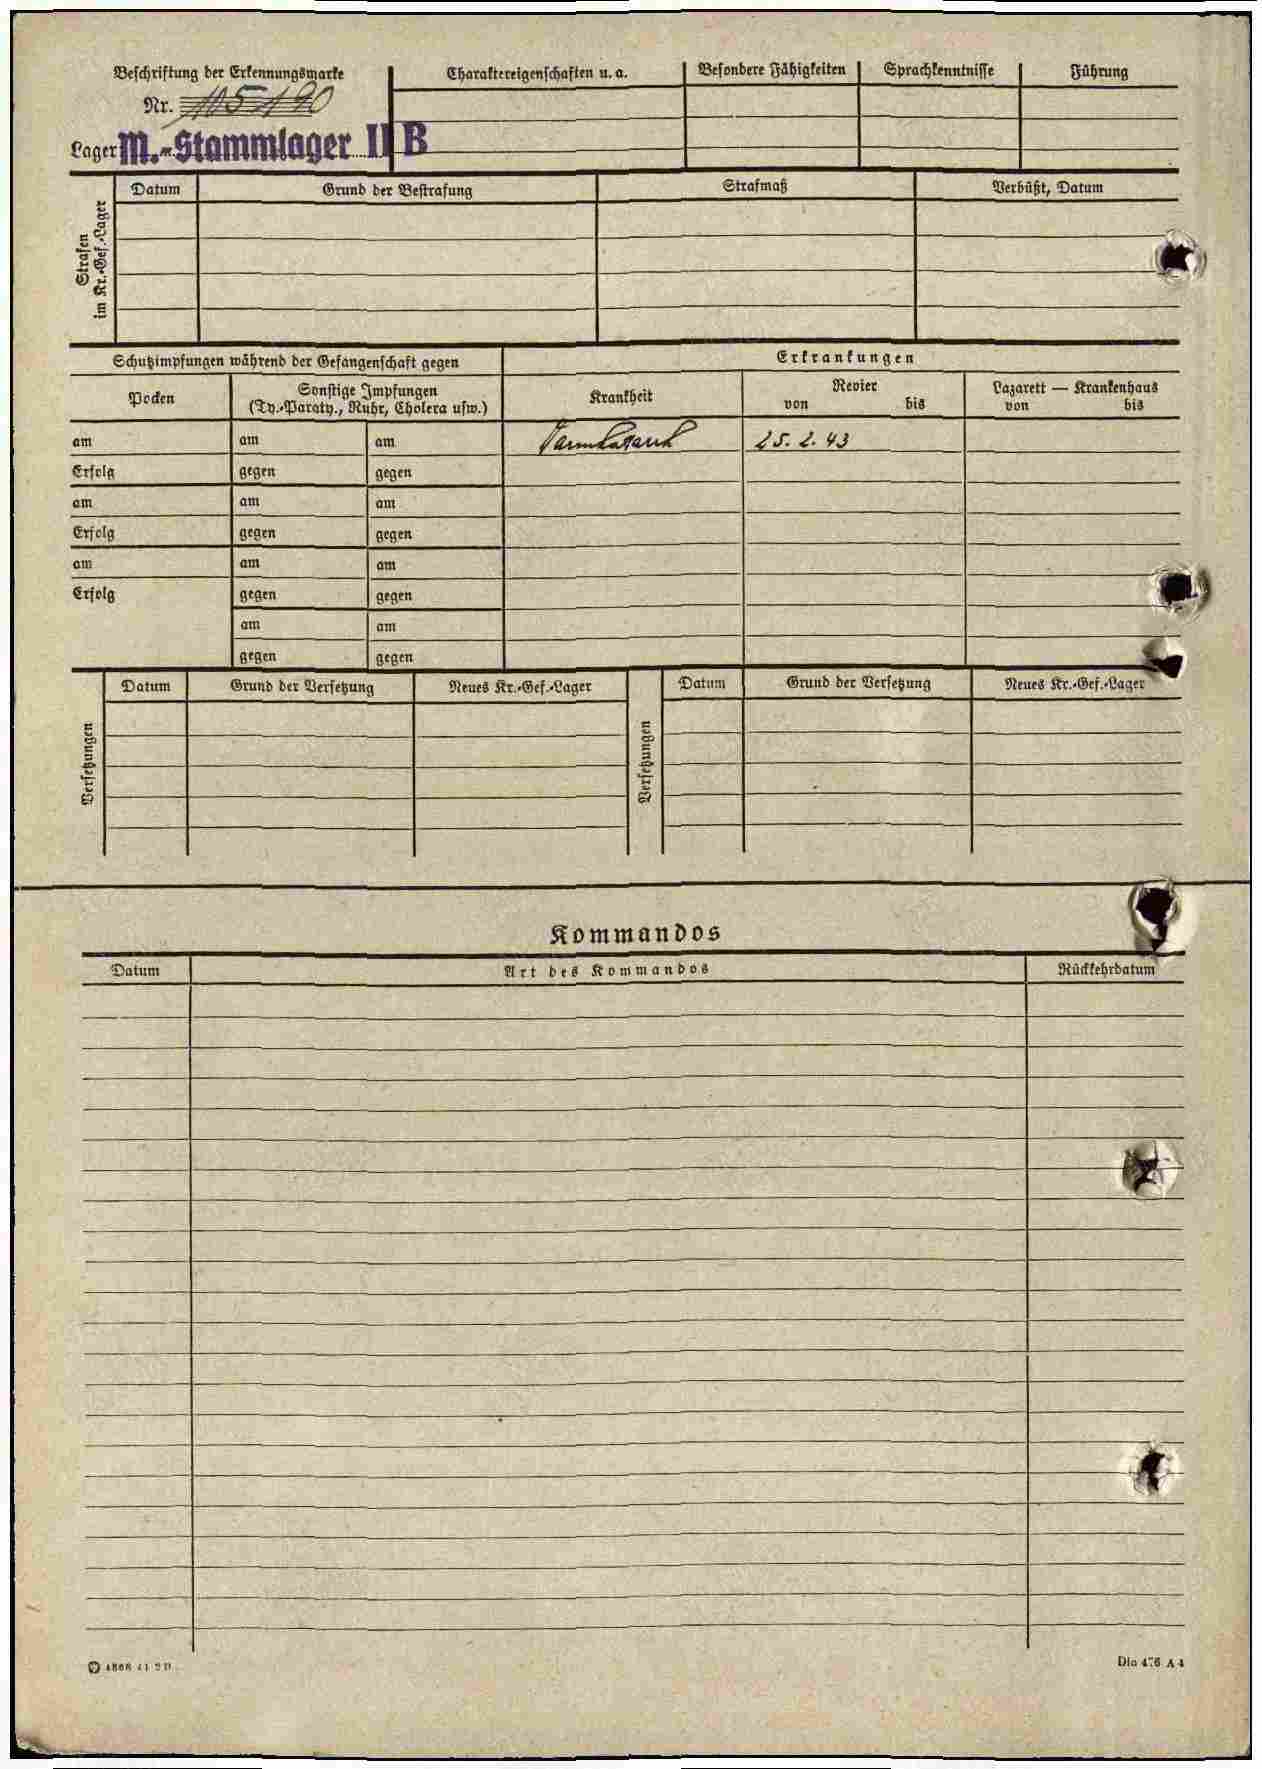 Beschriftung der Erkennungsmarke
Nr. 105190
Lager M.-Stammlager II B
Charaktereigenschaften u. a.
Besondere Fähigkeiten
Sprachkenntnisse
Führung
Strafen
im Kr.-Gef.-Lager
Datum
Grund der Bestrafung
Strafmaß
Verbüßt, Datum
Schutzimpfungen während der Gefangenschaft gegen
Erkrankungen
Pocken
Sonstige Impfungen
(Ty.-Paraty., Ruhr, Cholera usw.)
Krankheit
Revier
von bis
Lazarett — Krankenhaus
von bis
am am am Darmkatarrh 25. 2. 43
Erfolg gegen gegen
am am am
Erfolg gegen gegen
am am am
Erfolg gegen gegen
am am
gegen gegen
Versetzungen
Datum
Grund der Versetzung
Neues Kr.-Gef.-Lager
Versetzungen
Datum
Grund der Versetzung
Neues Kr.-Gef.-Lager
Kommandos
Datum
Art des Kommandos
Rückkehrdatum
Din 476 A 4